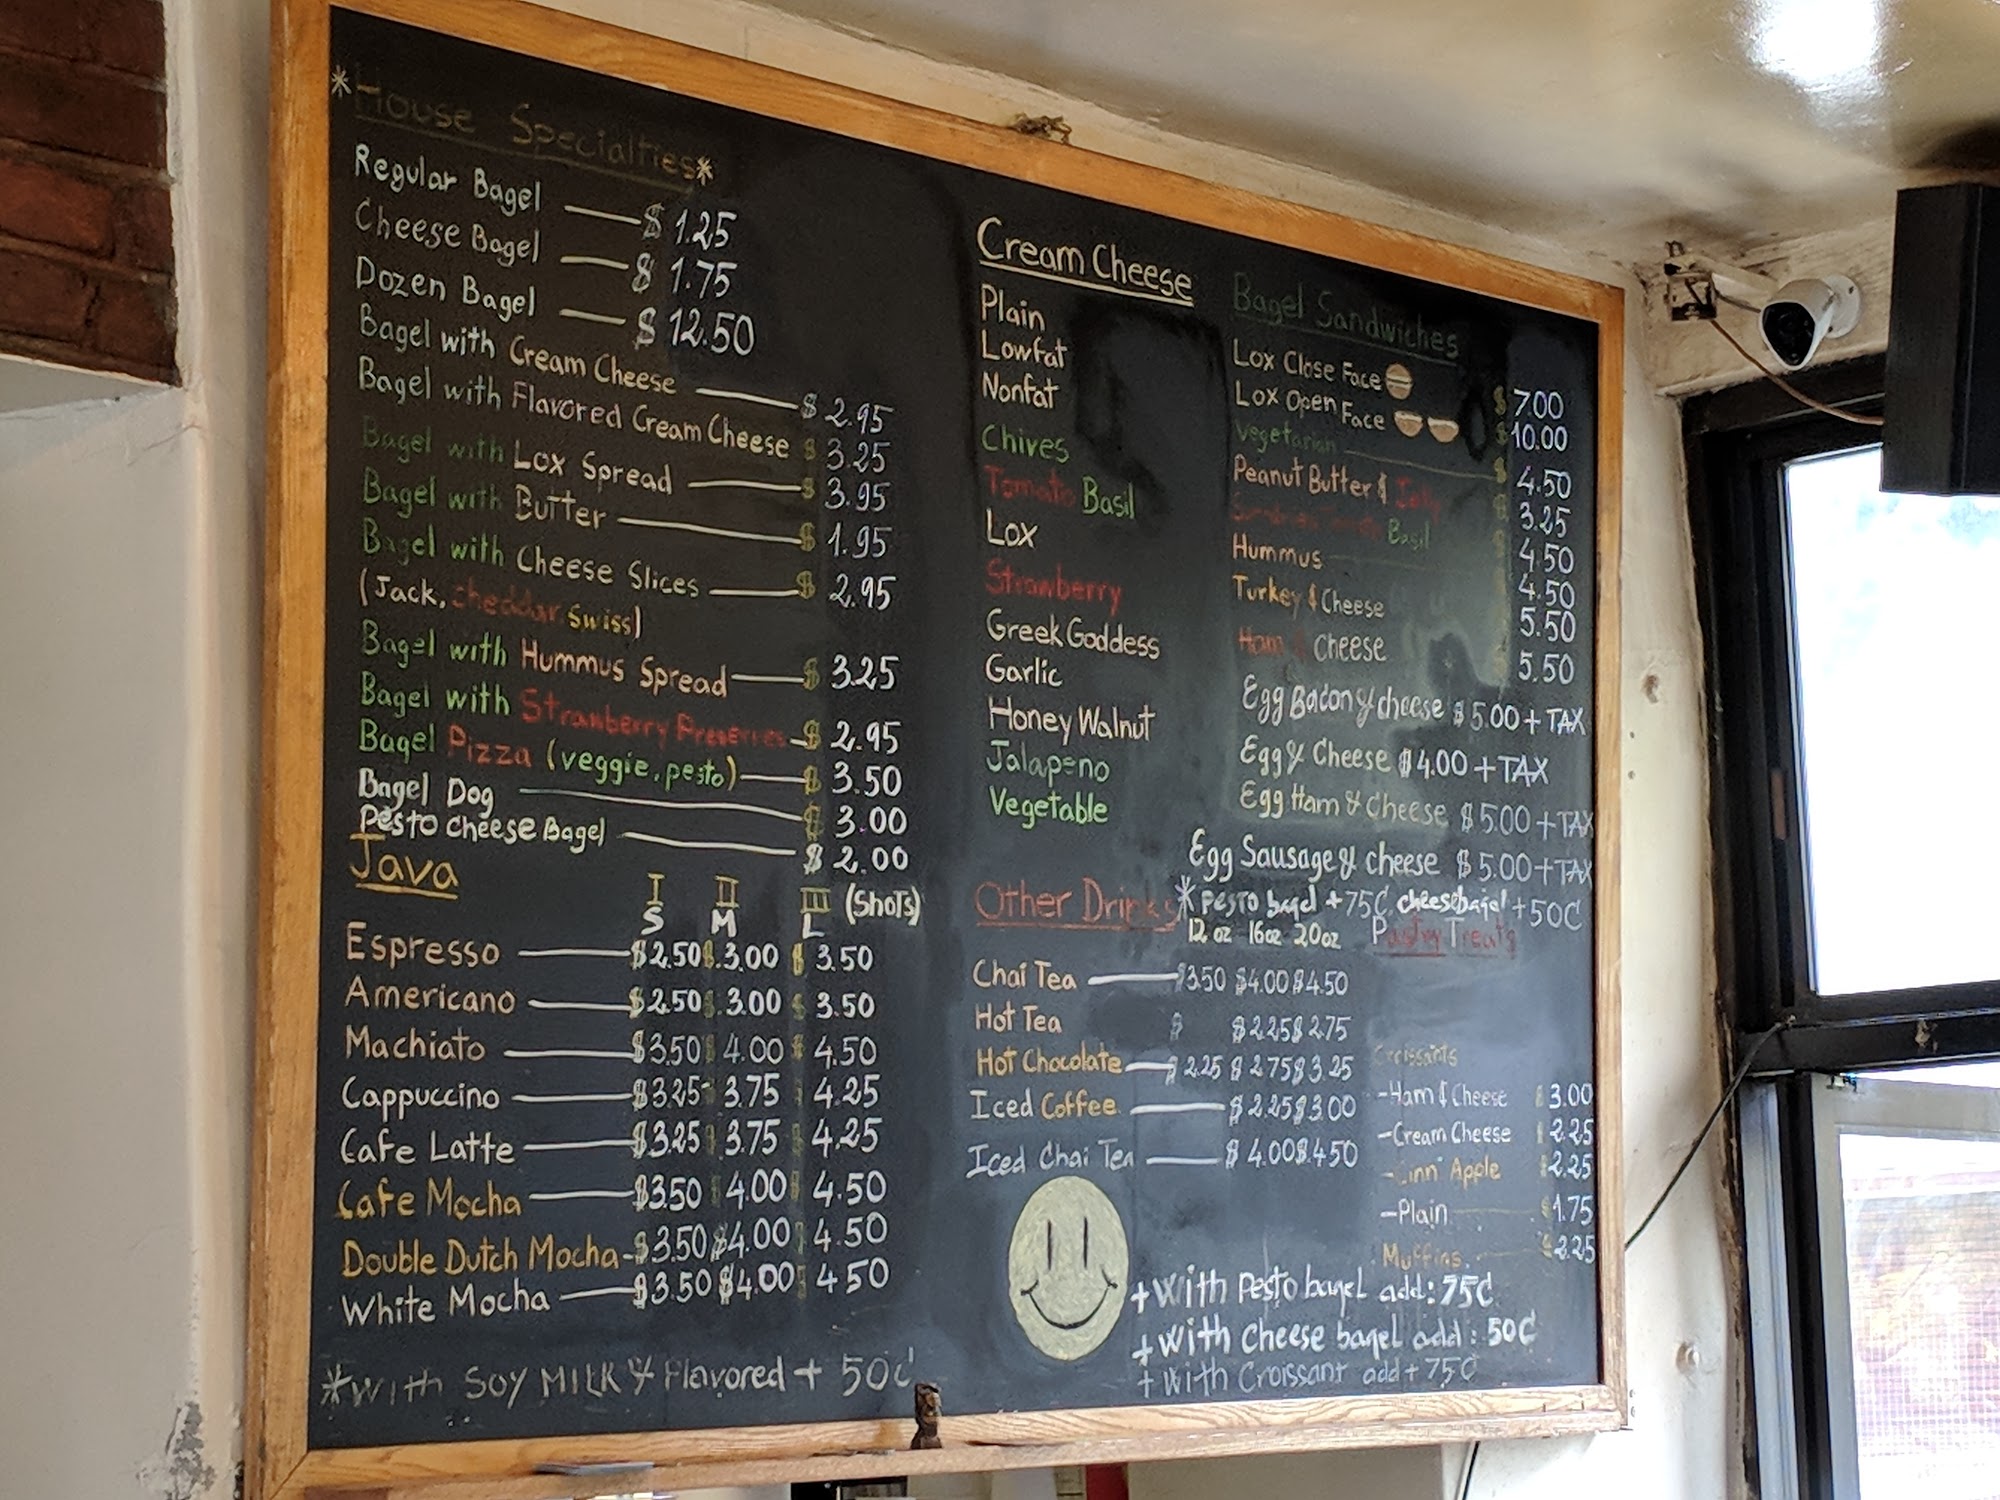 *House Specialties*
Regular Bagel $ 1.25
Cheese Bagel $ 1.75
Dozen Bagel $ 12.50
Bagel with Cream Cheese $ 2.95
Bagel with Flavored Cream Cheese $ 3.25
Bagel with Lox Spread $ 3.95
Bagel with Butter $ 1.95
Bagel with Cheese Slices $ 2.95
(Jack, cheddar swiss)
Bagel with Hummus Spread $ 3.25
Bagel with Strawberry Preserves $ 2.95
Bagel Pizza (veggie, pesto) $ 3.50
Bagel Dog $ 3.00
Pesto cheese Bagel $ 2.00
Java I II III (Shots)
S M L
Espresso $2.50 $3.00 $3.50
Americano $2.50 $3.00 $3.50
Machiato $3.50 $4.00 $4.50
Cappuccino $3.25 3.75 4.25
Cafe Latte $3.25 3.75 4.25
Cafe Mocha $3.50 4.00 4.50
Double Dutch Mocha $3.50 $4.00 4.50
White Mocha $3.50 $4.00 4 50
*With Soy MILK & Flavored + 50¢
Cream Cheese
Plain
Lowfat
Nonfat
Chives
Tomato Basil
Lox
Strawberry
Greek Goddess
Garlic
Honey Walnut
Jalapeno
Vegetable
Bagel Sandwiches
Lox Close Face $ 7.00
Lox Open Face $ 10.00
Vegetarian $ 4.50
Peanut Butter & Jelly $ 3.25
Sundried Tomato Basil $ 4.50
Hummus 4.50
Turkey & Cheese 5.50
Ham & Cheese 5.50
Egg Bacon & cheese $5.00 + TAX
Egg & Cheese $4.00 + TAX
Egg Ham & Cheese $5.00 + TAX
Egg Sausage & cheese $5.00 + TAX
*Pesto bagel +75¢, cheesebagel +50¢
Other Drinks 12 oz 16oz 20oz
Chai Tea $3.50 $4.00 $4.50
Hot Tea $ $2.25 $2.75
Hot Chocolate $2.25 $2.75 $3.25
Iced Coffee $2.25 $3.00
Iced Chai Tea $4.00 $4.50
Pastry Treats
Croissants
-Ham & Cheese $3.00
-Cream Cheese $2.25
-Cinn Apple $2.25
-Plain $1.75
Muffins $2.25
+With Pesto bagel add: 75¢
+With Cheese bagel add: 50¢
+With Croissant add + 75¢